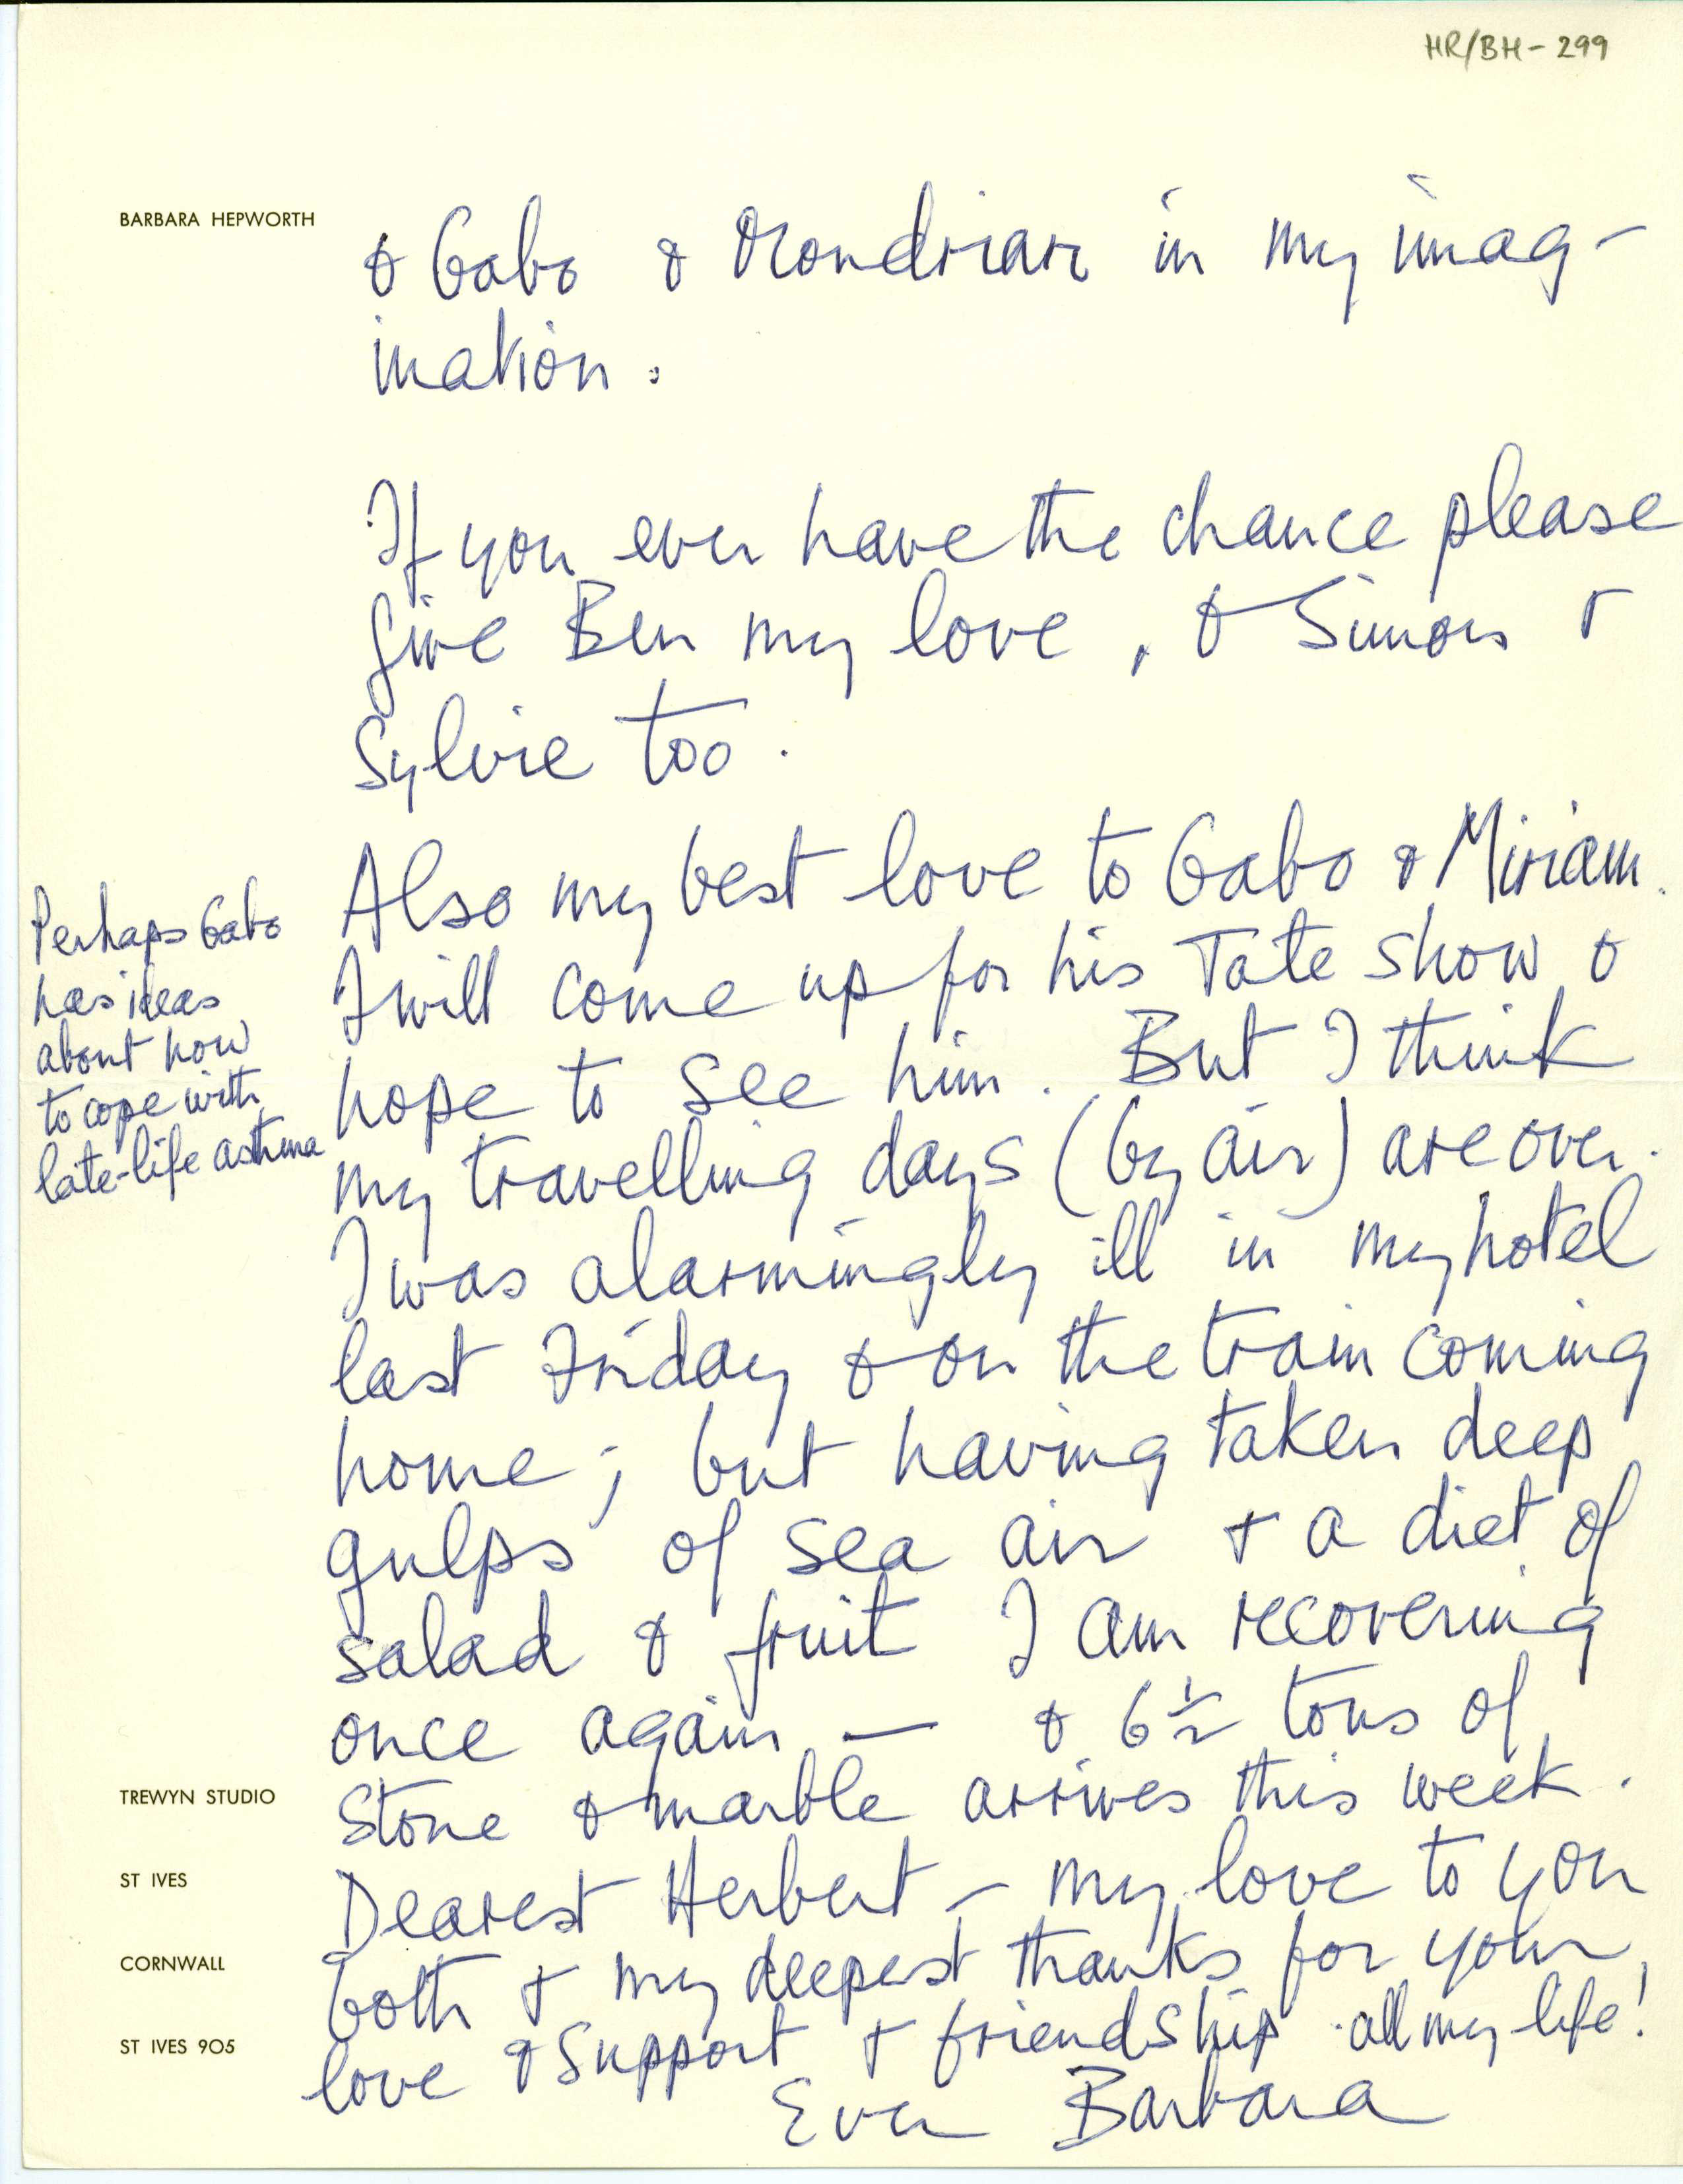 HR/BH - 299
BARBARA HEPWORTH
& Gabo & Mondrian in my imag-
ination.
If you ever have the chance please
give Ben my love, & Simon &
Sylvie too.
Also my best love to Gabo & Miriam.
I will come up for his Tate show &
hope to see him. But I think
my travelling days (by air) are over.
I was alarmingly ill in my hotel
last Friday & on the train coming
home; but having taken deep
gulps of sea air & a diet of
salad & fruit I am recovering
once again — & 6½ tons of
stone & marble arrives this week.
Dearest Herbert – my love to you
both & my deepest thanks for your
love & support & friendship all my life!
Ever Barbara
Perhaps Gabo
has ideas
about how
to cope with
late-life asthma
TREWYN STUDIO
ST IVES
CORNWALL
ST IVES 905